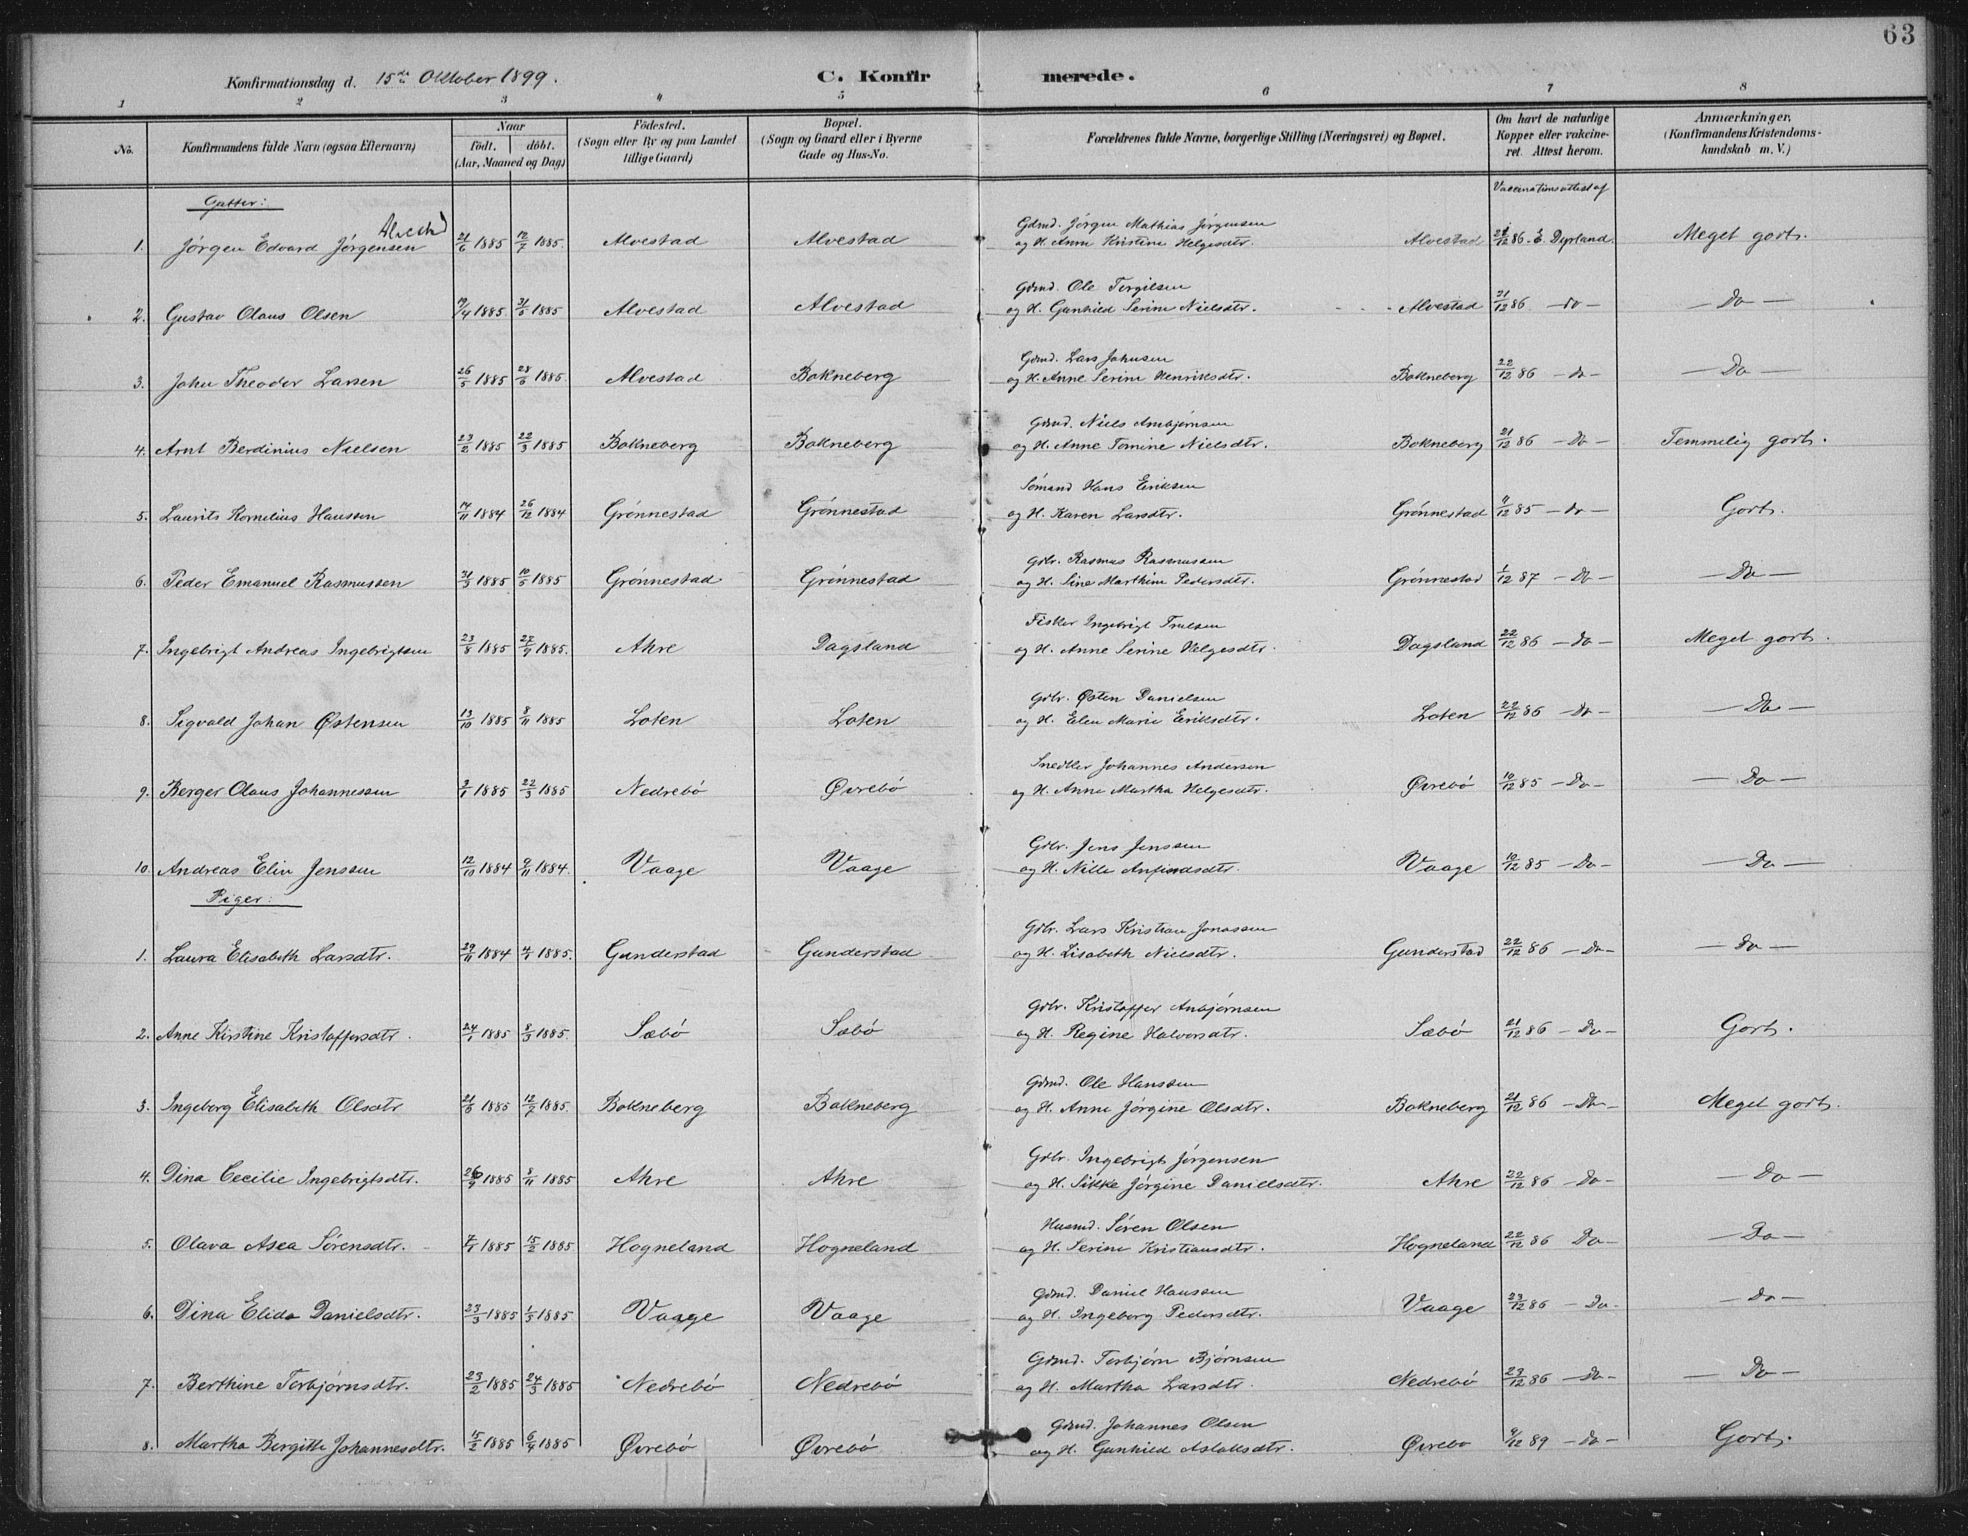 63
Konfirmationsdag d. 15de Oktober 1899.
C. Konfirmerede.
1 2 3 4 5 6 7 8
No.
Konfirmandens fulde Navn (ogsaa Efternavn)
Naar
födt. döbt.
(Aar, Maaned og Dag)
Födested.
(Sogn eller By og paa Landet
tillige Gaard)
Bopæl.
(Sogn og Gaard eller i Byerne
Gade og Hus-No.
Forældrenes fulde Navne, borgerlige Stilling (Næringsvei) og Bopæl.
Om havt de naturlige
Kopper eller vakcine-
ret. Attest herom.
Anmærkninger,
(Konfirmandens Kristendoms-
kundskab m. V.)
Vaccinationsattest af
Gutter:
Alvestad
Gdmd. Jørgen Mathias Jørgensen
1. Jørgen Edvard Jørgensen 21/6 1885 12/7 1885. Alvestad Alvestad og H. Anne Kristine Helgesdtr. Alvestad 21/12 86. E. Dyrland. Meget godt.
Gdmd. Ole Torgilsen
2. Gustav Olaus Olsen 19/4 1885 31/5 1885 Alvestad Alvestad og H. Gunhild Serine Nielsdtr. Alvestad 21/12 86 - do - - Do -
Gdmd. Lars Johnsen
3. John Theodor Larsen 26/5 1885 28/6 1885. Alvestad Bokneberg og H. Anne Serine Henriksdtr. Bokneberg 22/12 86 - do - - Do -
Gdmd. Niels Ambjørnsen
4. Arnt Berdinius Nielsen 23/2 1885 22/3 1885 Bokneberg Bokneberg og H. Anne Tomine Nielsdtr. Bokneberg 21/12 86 - Do - Temmelig godt.
Sømand Hans Eriksen
5. Laurits Kornelius Hanssen 14/11 1884 26/12 1884 Grönnestad Grönnestad og H. Karen Larsdtr. Grönnestad 85 - do - Godt.
Gbr. Rasmus Rasmussen
6. Peder Emanuel Rasmussen 31/3 1885 10/5 1885 Grönnestad Grönnestad og H. Sine Marthine Pedersdtr. Grönnestad 1/12 87 - Do - - Do -
Fisker Ingebrigt Trulsen
7. Ingebrigt Andreas Ingebrigtsen 23/8 1885 27/9 1885. Ahre Dagsland og H. Anne Serine Helgesdtr. Dagsland 22/12 86 - do - Meget godt.
Gbr. Østen Danielsen
8. Sigvald Johan Østensen 13/10 1885 8/11 1885 Loten Loten og H. Elen Marie Eriksdtr. Loten 22/12 86 - Do - - Do -
Snedker Johannes Andersen
9. Berger Olaus Johannessen 3/1 1885 22/3 1885 Nedrebö Øvrebö og H. Anne Martha Helgesdtr. Øvrebö 10/12 85 - Do - - Do -
Gbr. Jens Jenssen
10. Andreas Elin Jenssen 12/10 1884 9/11 1884. Vaage Vaage og H. Nille Anfindsdtr. Vaage 10/12 85 - Do - - Do -
Piger:
Gbr. Lars Kristian Jonassen
1. Laura Elisabeth Larsdtr. 29/11 1884 4/1 1885. Gunderstad Gunderstad og H. Lisabeth Nielsdtr. Gunderstad 22/12 86 - Do - - do -
Gbr. Kristoffer Anbjørnsen
2. Anne Kirstine Kristoffersdtr. 24/1 1885 8/3 1885. Sæbö Sæbö og H. Regine Halvorsdtr. Sæbö 21/12 86 - Do - Godt.
Gdmd. Ole Hanssen
3. Ingeborg Elisabeth Olsdtr 21/5 1885 12/7 1885. Bokneberg Bokneberg og H. Anne Jörgine Olsdtr. Bokneberg 21/12 86 - Do - Meget godt.
Gbr. Ingebrigt Jørgensen
4. Dina Cecilie Ingebrigtsdtr. 26/9 1885 8/11 1885 Ahre Ahre og H. Sikke Jörgine Danielsdtr. Ahre 22/12 86 - Do - - Do -
Husmd. Søren Olsen
5. Olava Asea Sörensdtr. 7/1 1885 15/2 1885 Hogneland Hogneland og H. Serine Kristiansdtr. Hogneland 22/12 86 Do - - Do -
Gdmd. Daniel Hanssen
6. Dina Elida Danielsdtr. 23/3 1885 1/5 1885 Vaage Vaage og H. Ingeborg Pedersdtr. Vaage 23/12 86 - Do. - Do -
Gdmd. Torbjörn Bjørnsen
7. Berthine Torbjørnsdtr. 23/2 1885 24/3 1885 Nedrebö Nedrebö og H. Martha Larsdtr. Nedrebö 23/12 86 - Do - - Do -
Gdmd. Johannes Olsen
8. Martha Bergitte Johannesdtr. 15/2 1885 6/4 1885 Øvrebö Øvrebö og H. Gunhild Aslaksdtr. Øvrebo 9/12 89 - do - Godt.